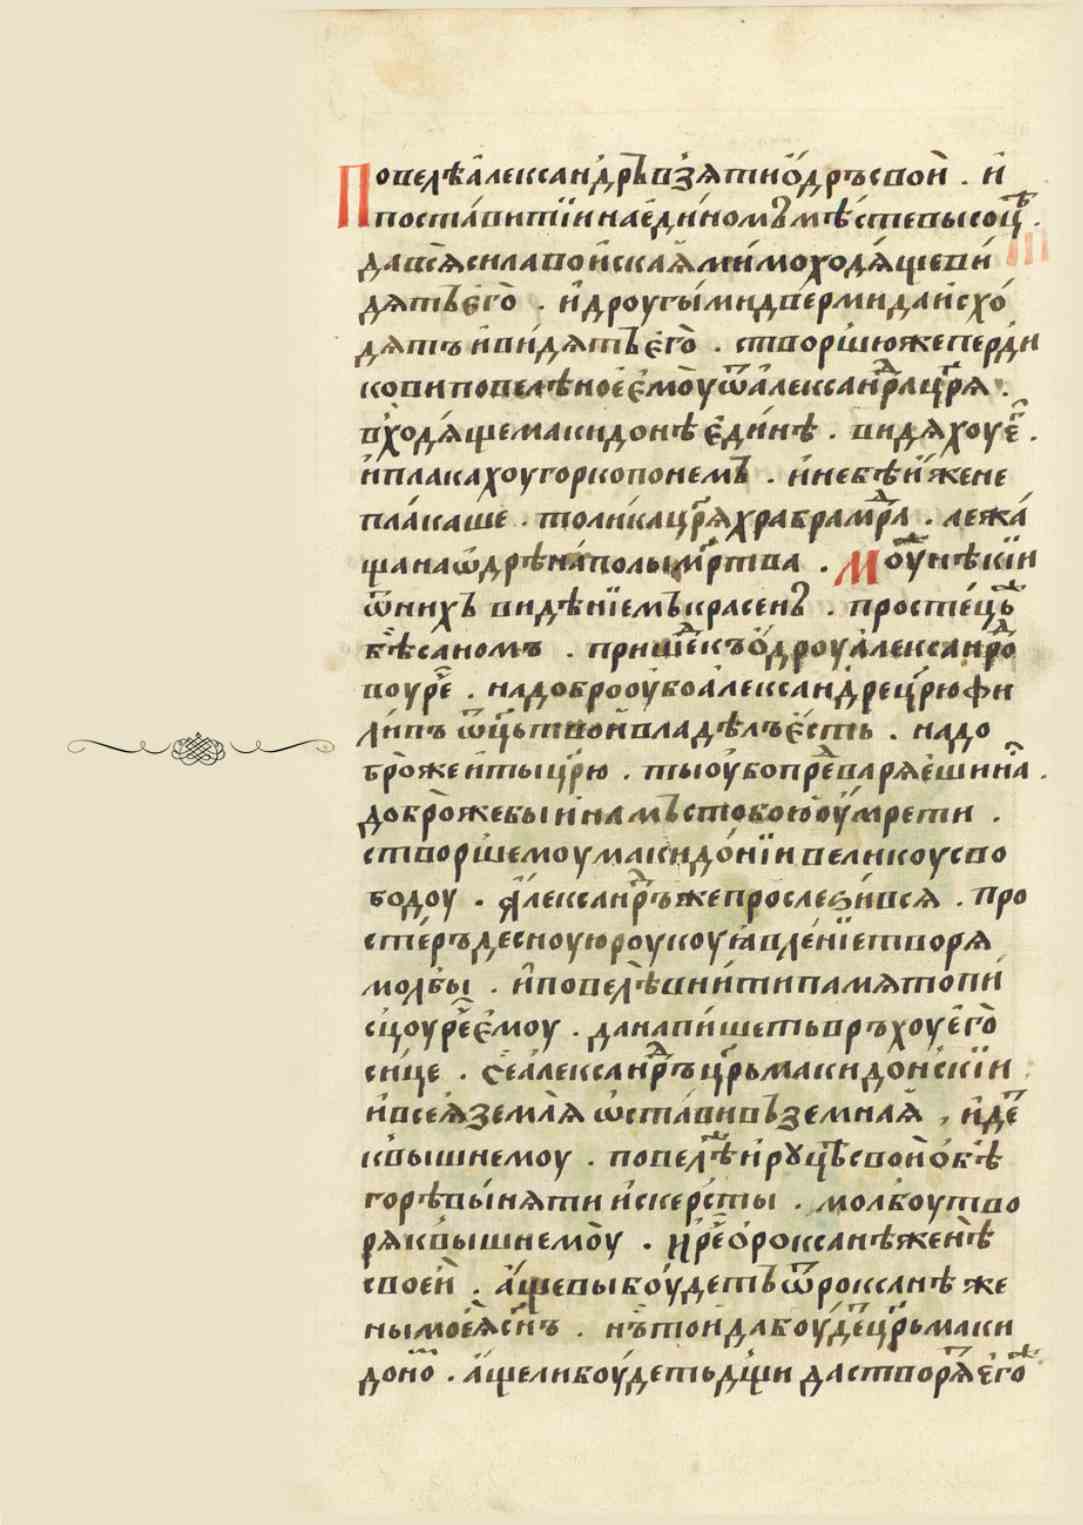 Повелѣ а҆леѯандръ взѧти ѻ҆дръ свой . и҆
поста́вити ї҆ и на є҆ди́номъ мѣ́сте высоцѣ .
да всѧ̀ сила вои́ньскаꙗ ми́мо ходѧ́щеви
дѧть є҆го̀ . и҆ дроугы́ми две́рми да и҆схо́
дѧть и҆ ви́дѧть є҆го̀ . створшю же перди
кови повелѣ́ное є҆моу̀ ѿ а҆лексанⷣра цр҃ѧ .
вхо́дѧще макидонѣ є҆ди́нѣ . видѧхоу є҆ .
и҆ плакахоу горко по немъ . и҆ не бѣ и҆же не
пла́каше . толика цр҃ѧ храбра мⷣра . лежа́
ща на ѡ҆дрѣ на́полы мр҃тва . Моу нѣкїи
ѿ нихъ видѣнїемъ красенъ . просте́ць
бѣ саномъ . пришеⷣ къ ѻ҆дроу а҆лексанⷣро
воу реⷱ . на добро оу҆бо а҆лександре цр҃ю фи
ли́пъ ѿц҃ь твой владѣлъ є҆сть . на до
бро̀ же и҆ ты цр҃ю . ты оу҆бо преваряеши на .
добро̀ же бы и҆ намъ с тобою оу҆мрети .
створшемоу макидо́нїи великоу сво
бодоу . а҆лексанⷣръ же прослези́всѧ . про
сте́ръ десноую роукоу ꙗ҆вле́нїе творѧ
молбы . и҆ повелѣ̀ вни́ти памѧтопи́
сцоу реⷱ є҆моу . да напи́шеть връхоу є҆го̀
си́це . се а҆лексанⷣръ цр҃ь макидо́нскїи
и҆ всеѧ̀ землѧ̀ ѡ҆ста́вивъ земнаꙗ , и҆деⷮ
к вы́шнемоу . повелѣ и҆ рꙋцѣ свои ѻ҆бѣ
горѣ вы́нѧти и҆с керсты . молбоу тво
рѧ к вы́шнемоу . и҆ реⷱ ѻ҆ роксанѣ женѣ̀
своей . а҆́ще вы бо́удеть ѿ роксанѣ же
ны моеѧ̀ сн҃ъ . нъ той да боу́деⷮ цр҃ь маки
доноⷨ . а҆́ще ли боу́деть дщи да створѧⷮ є҆го